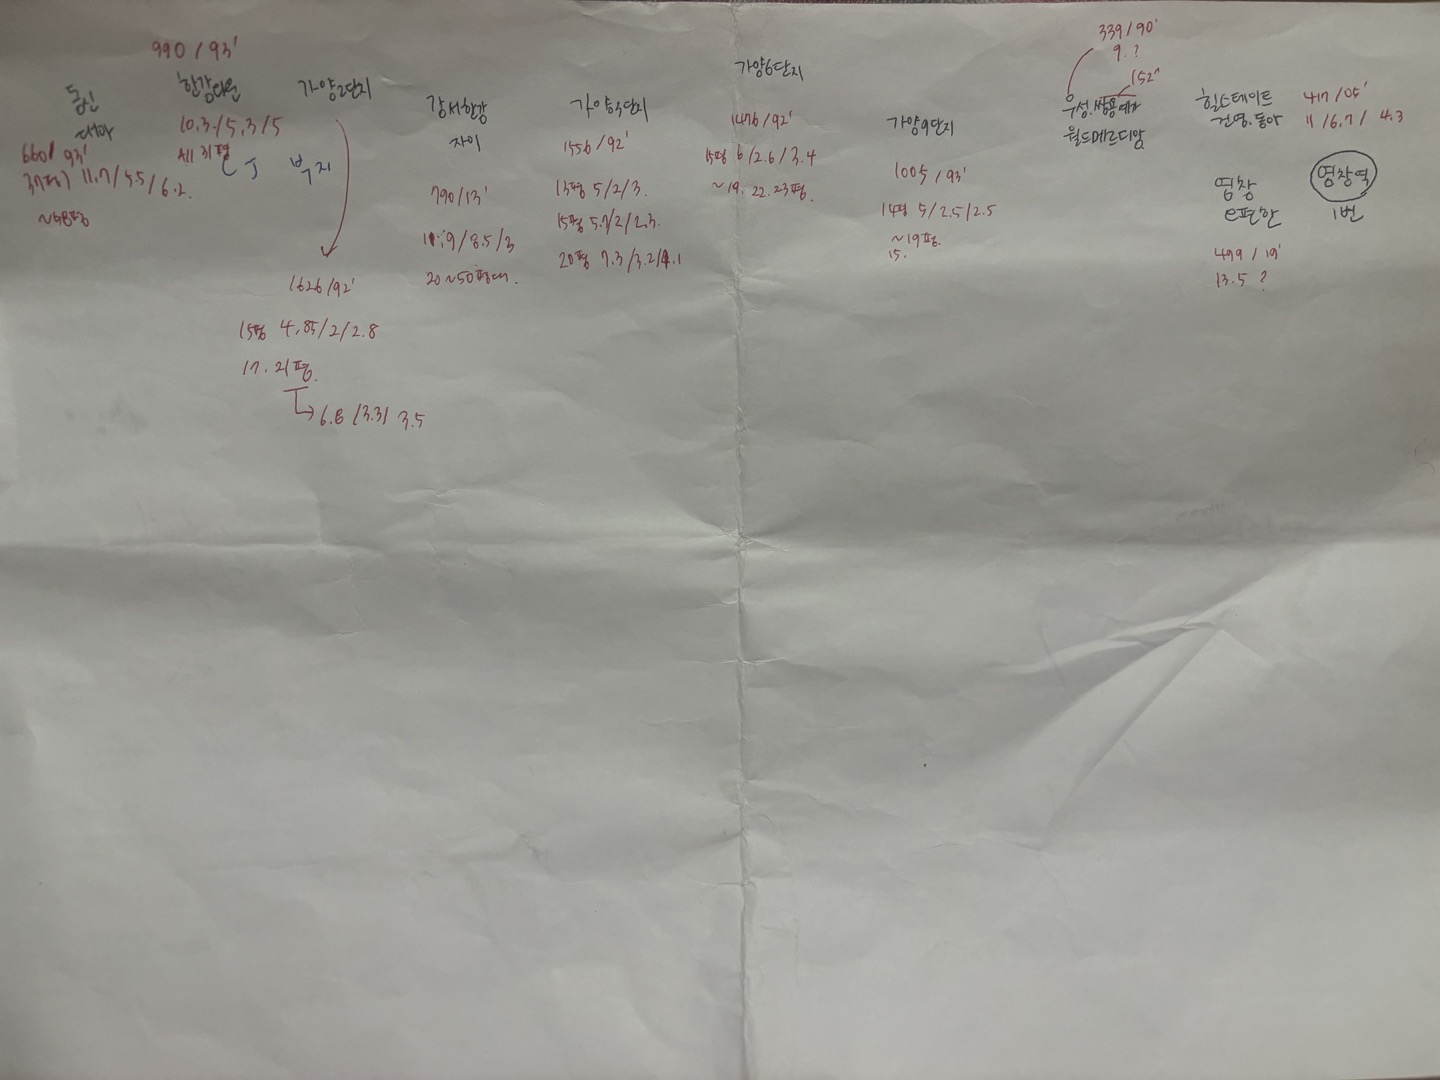 990 / 93'
한강타운
10.3/5.3/5
31평
CJ 부지
동신
대아
660/ 93'
37평 11.7/5.5/6.2.
~58평
가양2단지
1626/92'
15평 4.85/2/2.8
17. 21평.
6.8 /3.3/ 3.5
강서한강
자이
790/13'
/8.5/3
20~50평대.
가양3단지
1556/92'
13평 5/2/3.
15평 5.7/2/2.3.
20평 7.3/3.2/4.1
가양6단지
1476/92'
15평 6/2.6/3.4
~19. 22. 23평.
가양9단지
1005/93'
14평 5/2.5/2.5
~19평.
15.
339/90'
9.?
152"
우성.쌍용
월드메르디앙
힐스테이트
건영.동아
417/05'
11/6.7/ 4.3
염창
e편한
499 / 19'
13.5 ?
염창역
1번